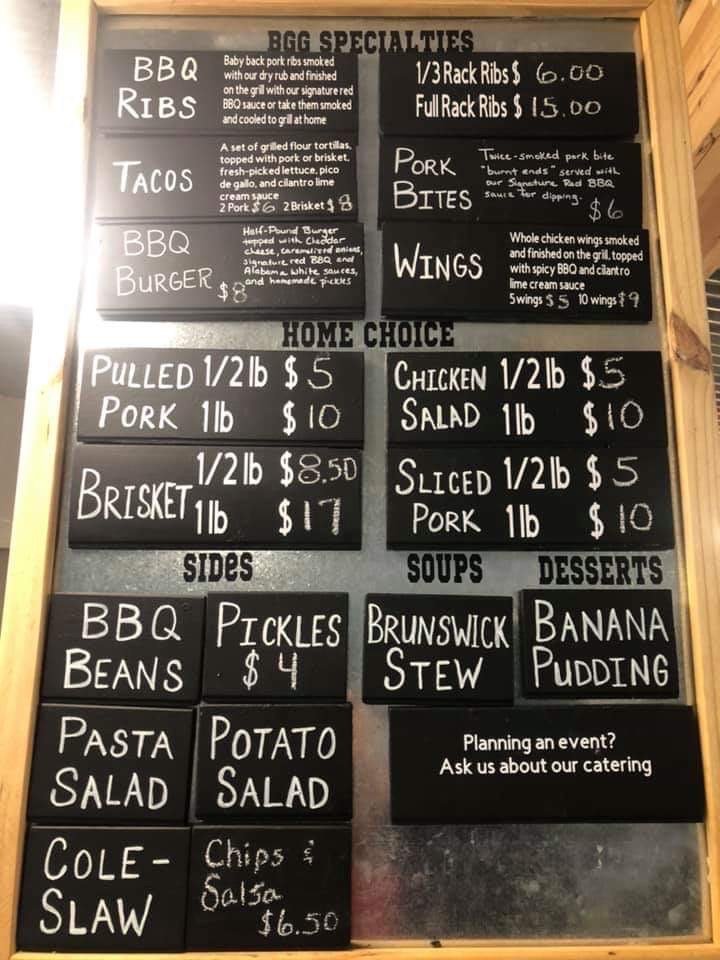 BGG SPECIALTIES
BBQ
RIBS
Baby back pork ribs smoked
with our dry rub and finished
on the grill with our signature red
BBQ sauce or take them smoked
and cooled to grill at home
1/3 Rack Ribs $ 6.00
Full Rack Ribs $ 15.00
TACOS
A set of grilled flour tortillas,
topped with pork or brisket,
fresh-picked lettuce, pico
de gallo, and cilantro lime
cream sauce
2 Pork $6 2 Brisket $8
PORK
BITES
Twice-smoked pork bite
"burnt ends" served with
our Signature Red BBQ
sauce for dipping.
$6
BBQ
BURGER $8
Half-Pound Burger
topped with Cheddar
cheese, caramelized onions,
signature red BBQ and
Alabama white sauces,
and homemade pickles
WINGS
Whole chicken wings smoked
and finished on the grill, topped
with spicy BBQ and cilantro
lime cream sauce
5 wings $5 10 wings $9
HOME CHOICE
PULLED 1/2 lb $5
PORK 1 lb $10
CHICKEN 1/2 lb $5
SALAD 1 lb $10
BRISKET 1/2 lb $8.50
1 lb $17
SLICED 1/2 lb $5
PORK 1 lb $10
SIDES
BBQ
BEANS
PICKLES
$4
PASTA
SALAD
POTATO
SALAD
COLE-
SLAW
Chips &
Salsa
$6.50
SOUPS
BRUNSWICK
STEW
DESSERTS
BANANA
PUDDING
Planning an event?
Ask us about our catering